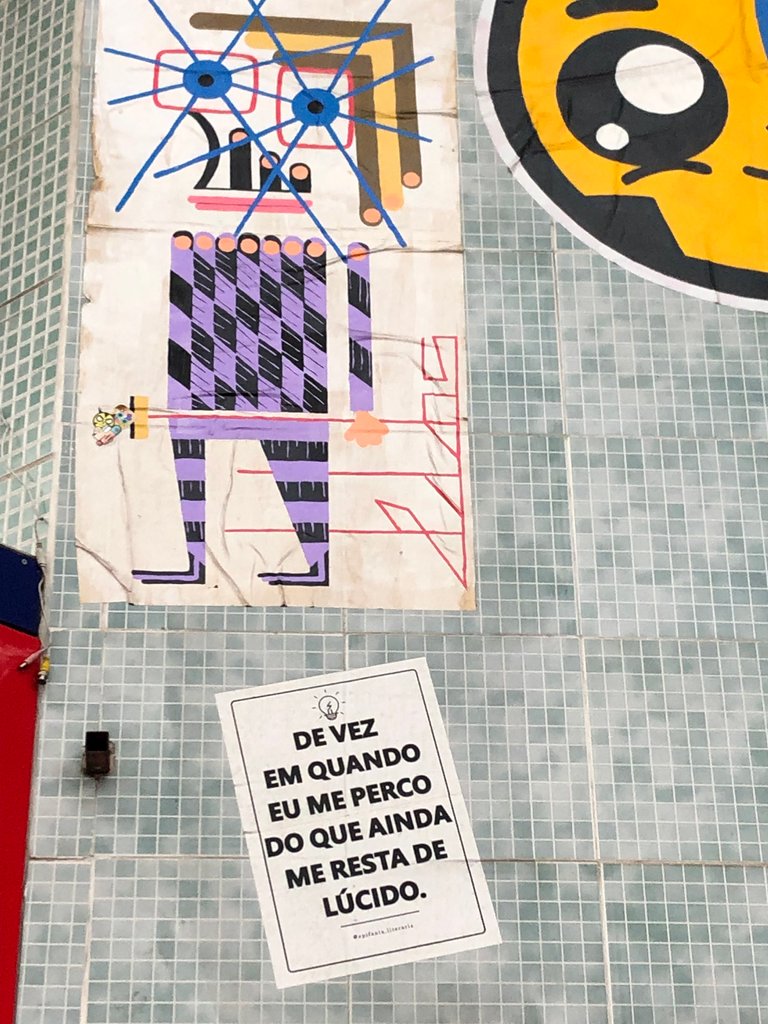 DE VEZ
EM QUANDO
EU ME PERCO
DO QUE AINDA
ME RESTA DE
LÚCIDO.
@epifania.literaria